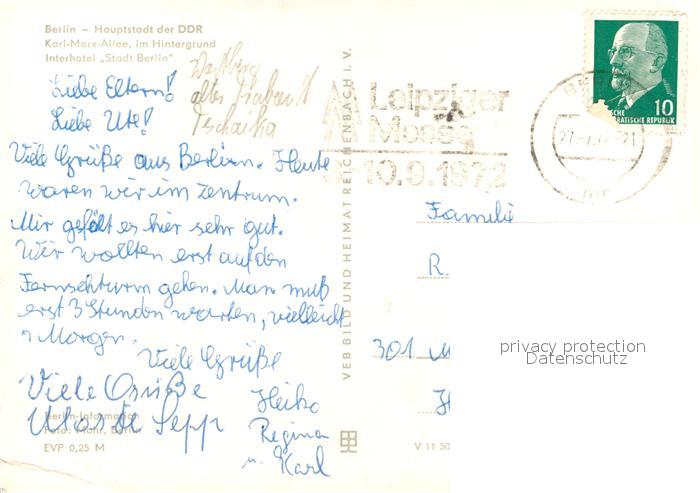 Berlin – Hauptstadt der DDR
Karl-Marx-Allee, im Hintergrund
Interhotel „Stadt Berlin"
Wartburg
alter Trabant
Tschaika
Liebe Eltern!
Liebe Ute!
Viele Grüße aus Berlin. Heute
waren wir im Zentrum.
Mir gefält es hier sehr gut.
Wir wollten erst auf den
Fernsehturm gehen. Man muß
erst 3 Stunden warten, vielleicht
Morgen.
Viele Grüße
Heiko
Regina
u. Karl
Viele Grüße
Sepp
Berlin-Information
Foto: Mohr, Berlin
EVP 0,25 M
VEB BILD UND HEIMAT REICHENBACH i. V.
Leipziger
Messe
10.9.1972
10
DEMOKRATISCHE REPUBLIK
Familie
R.
301 M
H
V 11 50
privacy protection
Datenschutz